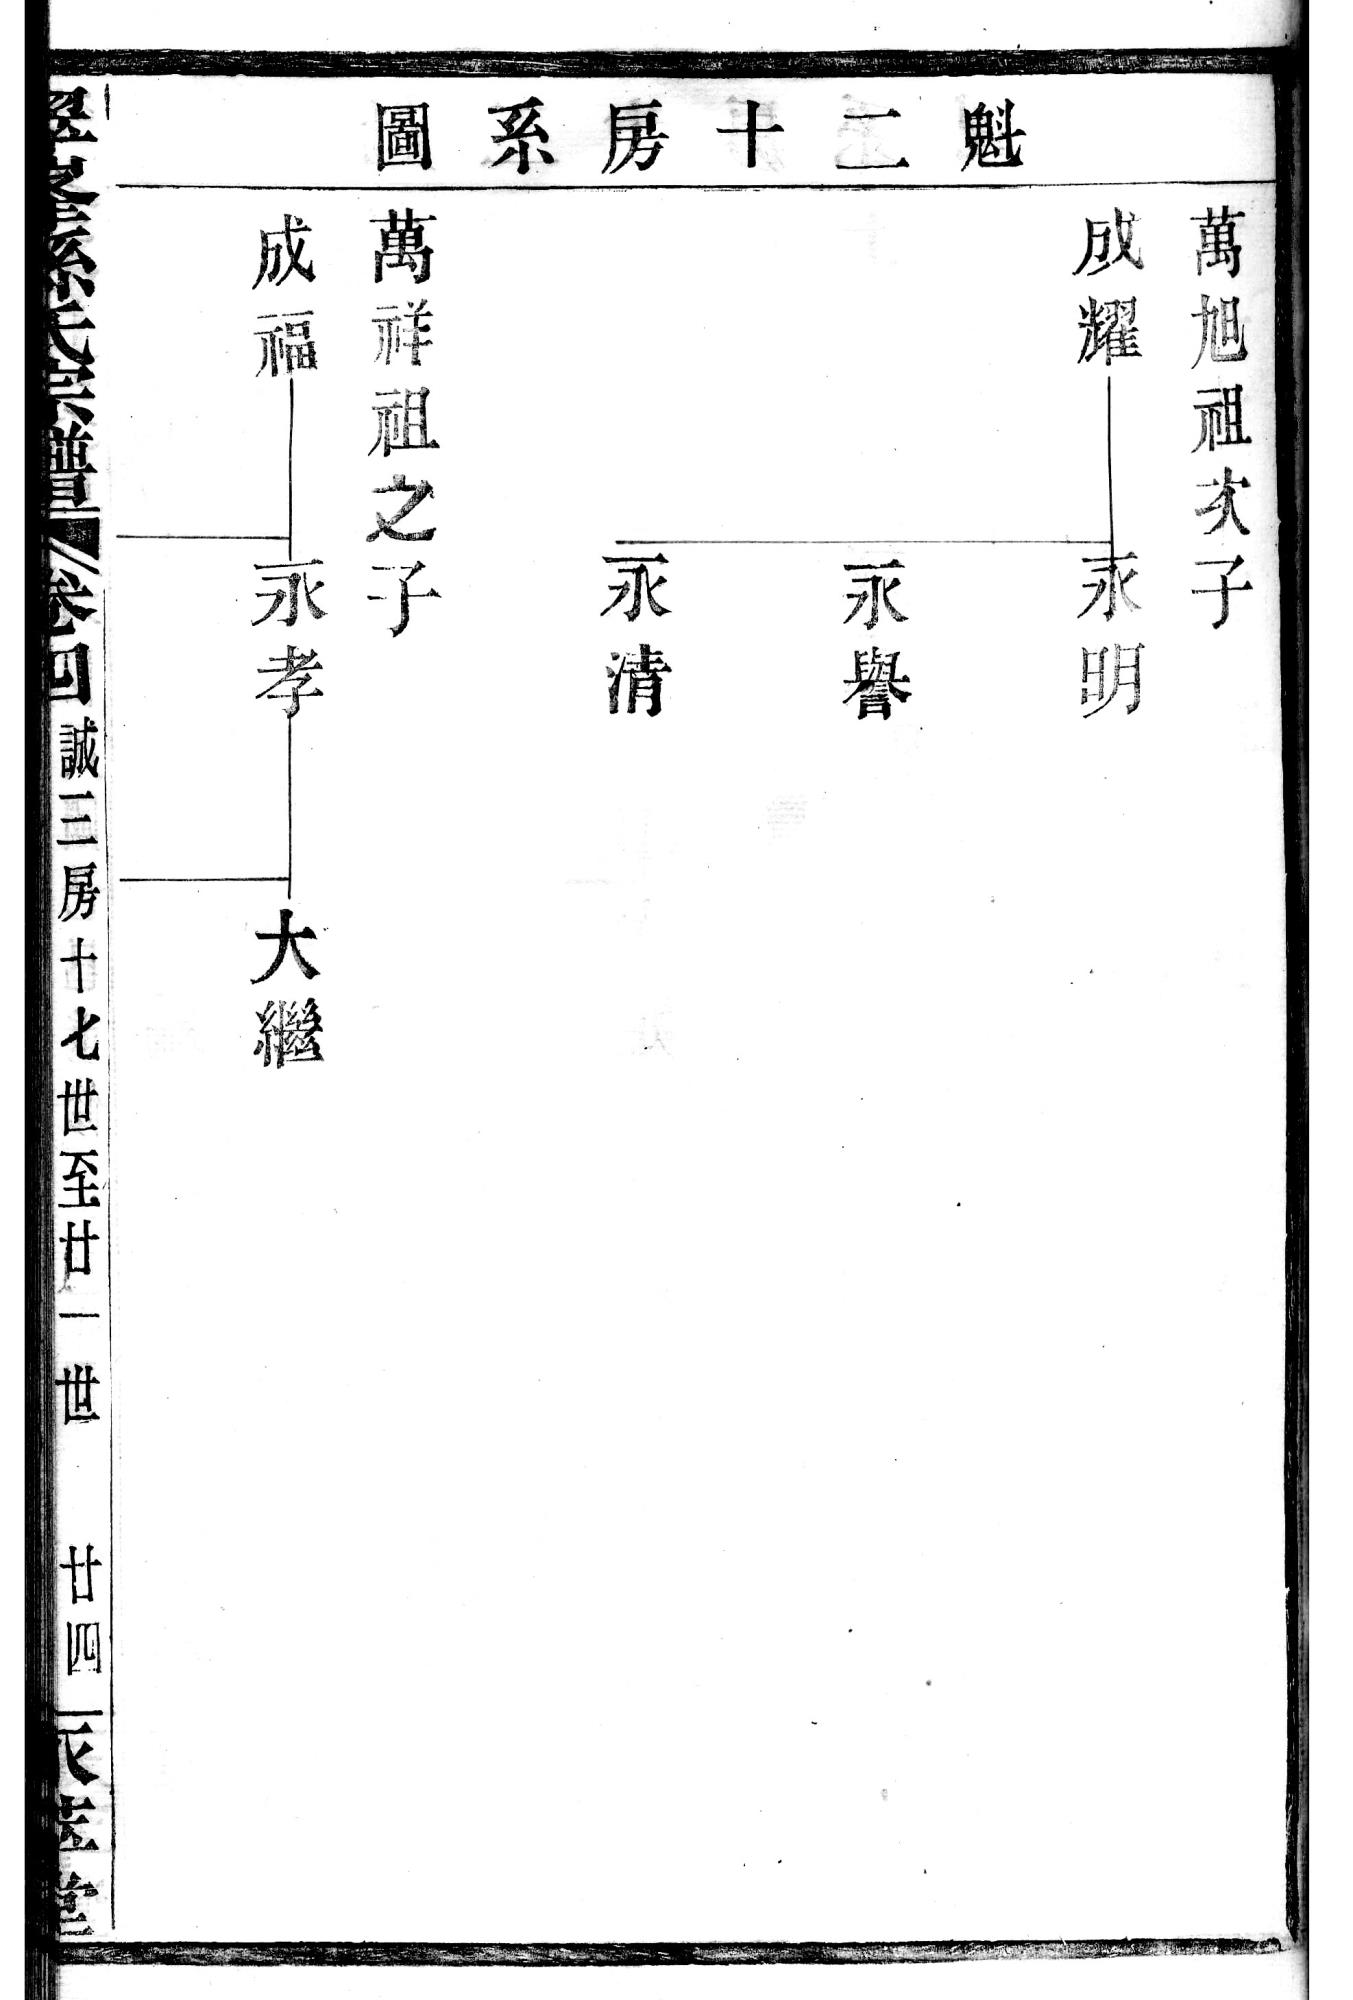 魁二十房系圖
萬旭祖次子
成耀
永明
永譽
永清
萬祥祖之子
成福
永孝
大繼
孫氏宗譜
卷四
誠三房十七世至廿一世
廿四
堂